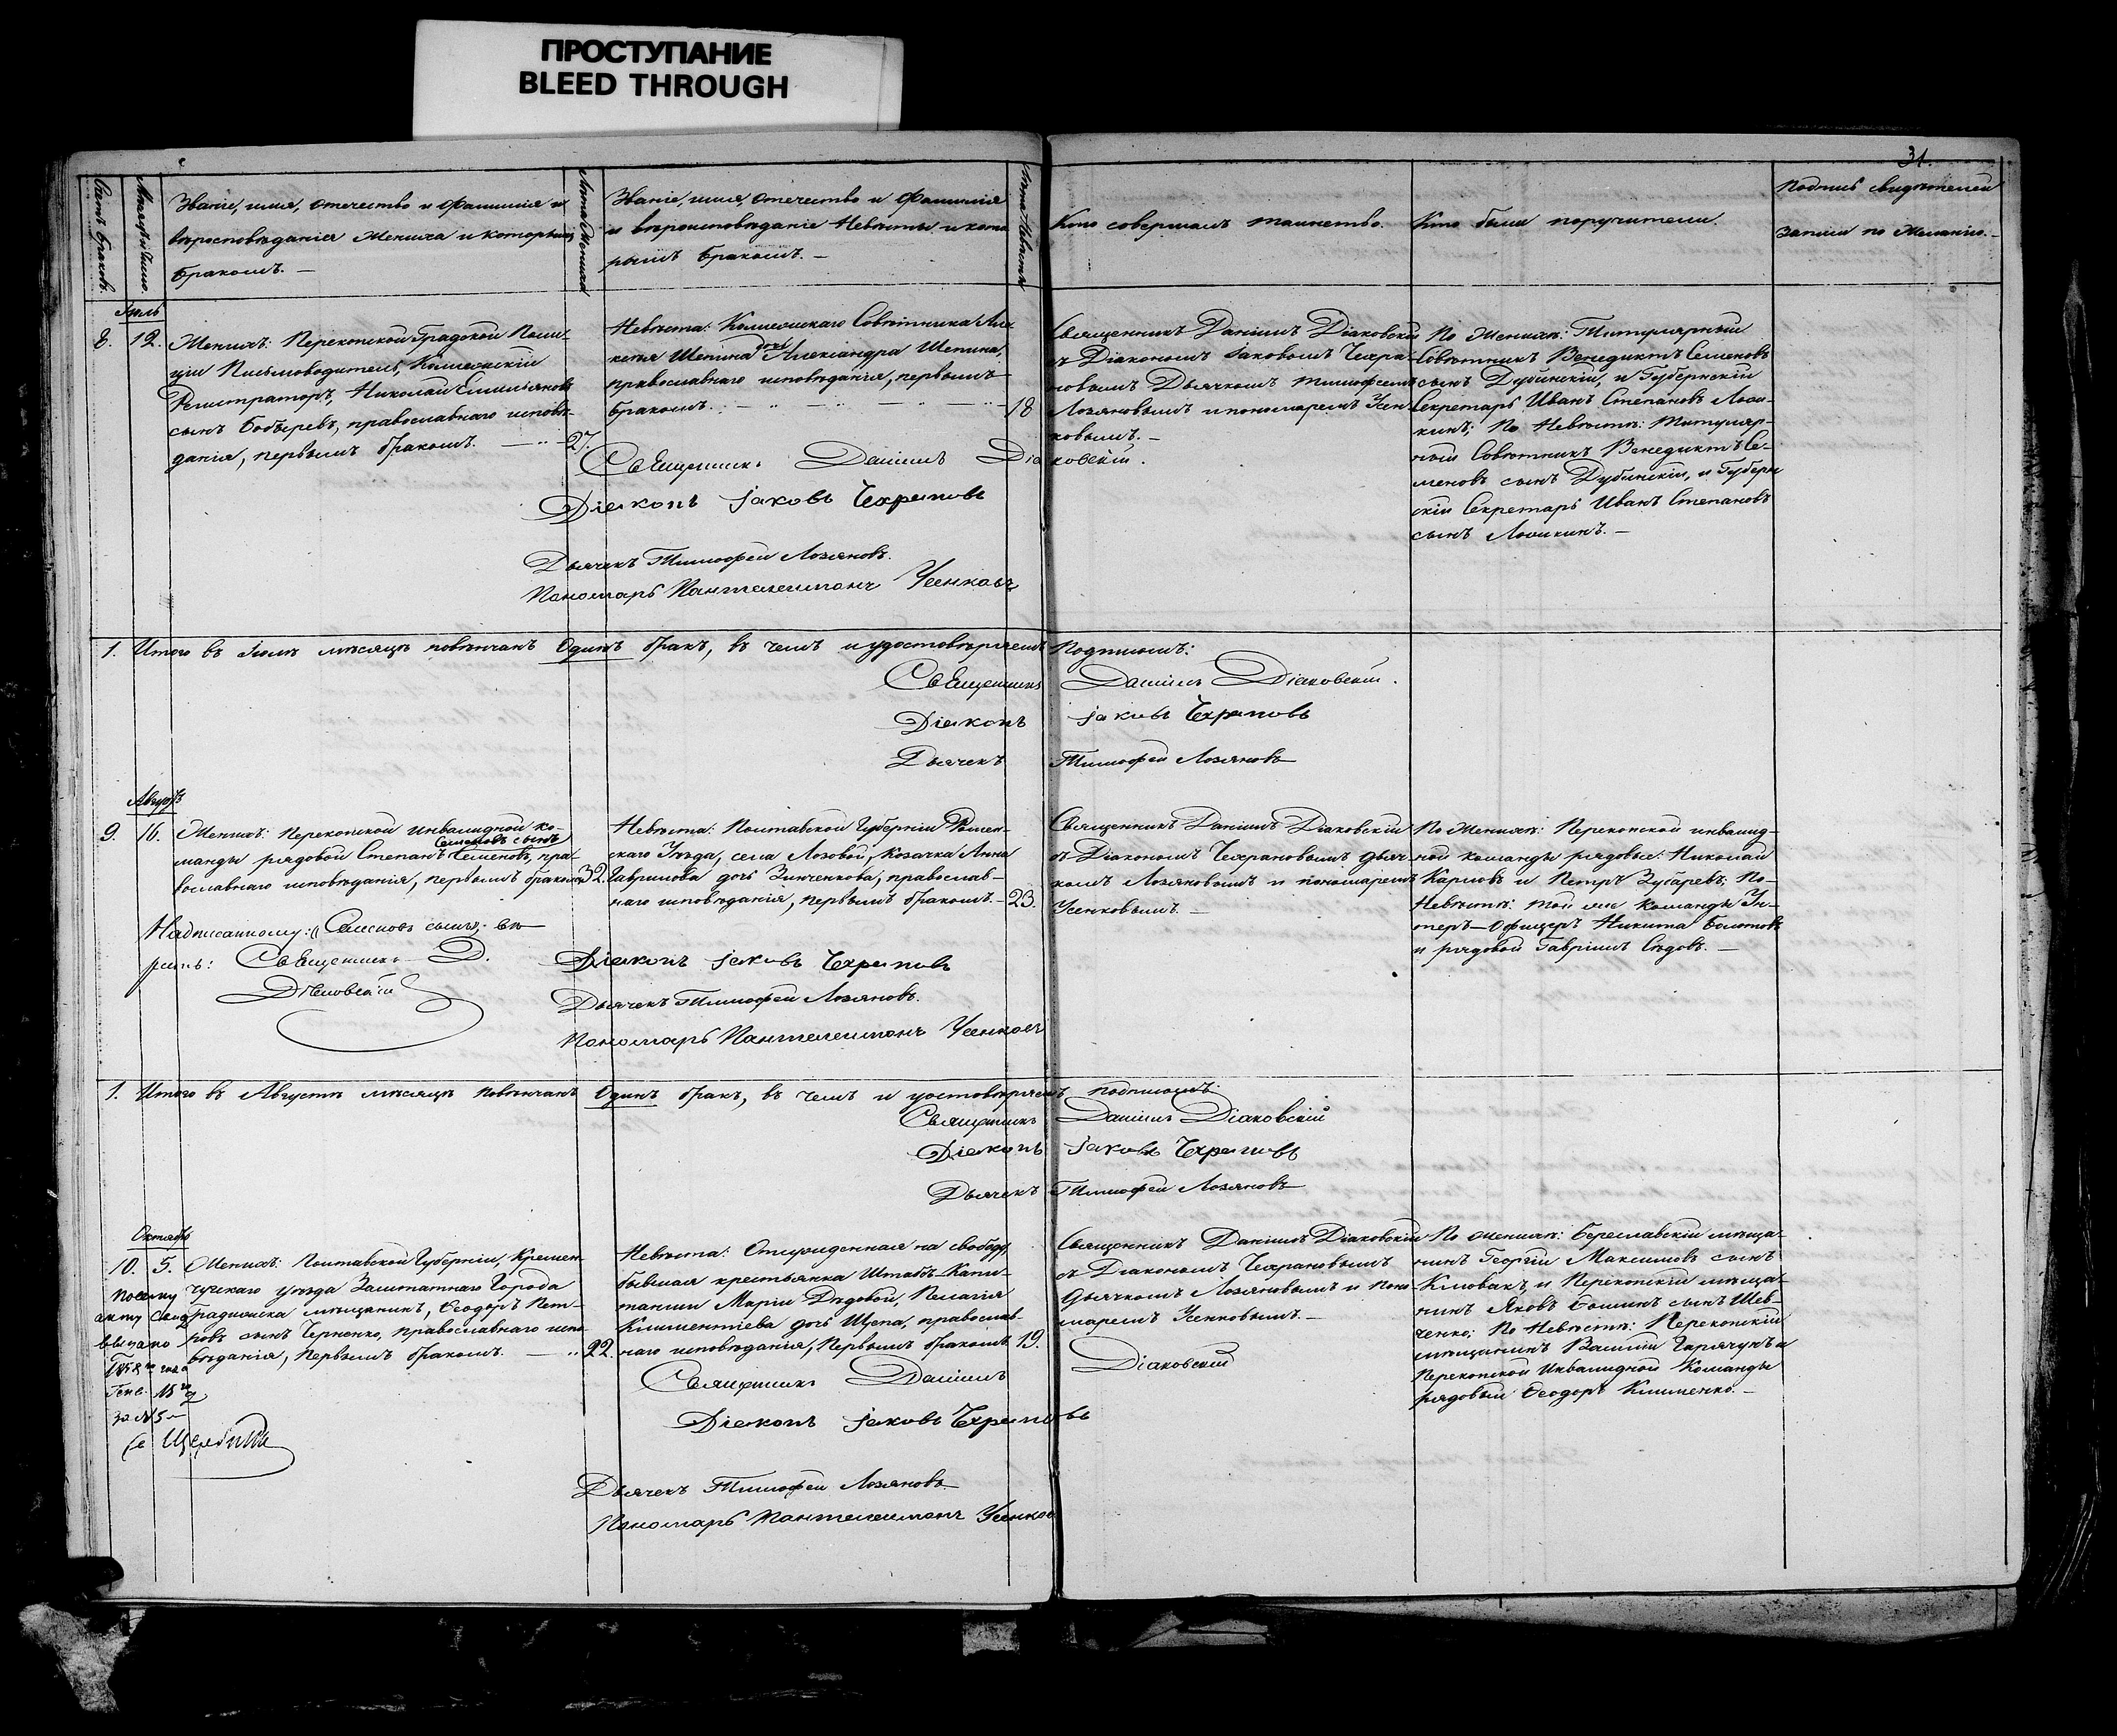 ПРОСТУПАНИЕ
BLEED THROUGH
31.
Счетъ браковъ.
Мѣсяцъ и число.
Званіе, имя, отечество и фамилія и
вѣроисповѣданія жениха и которымъ
бракомъ. —
Лѣта жениха
Званіе, имя, отечество и фамилія
и вѣроисповѣданіе Невѣсты и кото
рымъ бракомъ. —
Лѣта Невѣсты
Кто совершалъ таинство.
Кто были поручители.
Подпись свидѣтелей
записи по желанію. —
Іюль
8. 12.
Женихъ: Перекопской Градской Поли-
ціи Письмоводитель, Коллежскій
Регистраторъ, Николай Емильяновъ
сынъ Бобыревъ, православнаго исповѣ-
данія, первымъ бракомъ. —
27.
Невѣста: Коллежскаго Совѣтника
Щепина дочь Александра Щепина,
православнаго исповѣданія, первымъ
бракомъ. —
18
Священникъ Даніилъ Діаковскій
съ Діакономъ Іаковомъ Чехра-
новымъ Дьячкомъ Тимофеемъ
Лозяновымъ и пономаремъ Усен-
ковымъ. —
По Женихѣ: Титулярный
Совѣтникъ Венедиктъ Семеновъ
сынъ Дубинскій, и Губернскій
Секретарь Иванъ Степановъ
По Невѣстѣ: Титуляр-
ный Совѣтникъ Венедиктъ Се-
меновъ сынъ Дубинскій, и Губерн
скій Секретарь Иванъ Степановъ
сынъ
Священникъ Даніилъ Діаковскій.
Діаконъ Іаковъ Чехрановъ
Дьячекъ Тимофей Лозяновъ.
Пономарь Пантелеимонъ Усенковъ
1. Итого въ Іюлѣ мѣсяцѣ повѣнчанъ Одинъ бракъ, въ чемъ и удостовѣряемъ Подписомъ:
Священникъ Даніилъ Діаковскій.
Діаконъ Іаковъ Чехрановъ
Дьячекъ Тимофей Лозяновъ
Августъ
9. 16.
Женихъ: Перекопской инвалидной ко-
Семеновъ сынъ
манды рядовой Степанъ Семеновъ, пра-
вославнаго исповѣданія, первымъ бракомъ
32.
Невѣста: Полтавской Губерніи Ромен-
скаго Уѣзда, села Лозовой, Козачка Анна
Гаврилова дочь Зинченкова, православ-
наго исповѣданія, первымъ бракомъ. —
23.
Священникъ Даніилъ Діаковскій
съ Діакономъ Чехрановымъ дьяч-
комъ Лозяновымъ и пономаремъ
Усенковымъ. —
По Женихѣ: Перекопской инвалид-
ной команды рядовые: Николай
Карповъ и Петръ Зубаревъ; По
Невѣстѣ: той же команды Ун-
теръ-Офицеръ Никита Болотовъ
и рядовой Гавріилъ Сѣдовъ. —
Надписанному: „Семеновъ сынъ„ вѣ-
рить: Священникъ Д.
Діаковскій
Діаконъ Іаковъ Чехрановъ
Дьячекъ Тимофей Лозяновъ.
Пономарь Пантелеимонъ Усенковъ
1. Итого въ Августѣ мѣсяцѣ повѣнчанъ Одинъ бракъ, въ чемъ и удостовѣряемъ подписомъ:
Священникъ Даніилъ Діаковскій
Діаконъ Іаковъ Чехрановъ
Дьячекъ Тимофей Лозяновъ
Октябрь
10. 5.
По сему
акту Свид
выдано
1858 го года
Генв. 15 го
за № 5
Женихъ: Полтавской Губерніи, Кремен-
чугскаго уѣзда Заштатнаго Города
Градижска мѣщанинъ, Ѳеодоръ Пет-
ровъ сынъ Черненко, православнаго испо-
вѣданія, Первымъ бракомъ. —
22.
Невѣста: Отпущенная на свободу
бывшая крестьянка Штабъ-Капи-
танши Маріи Дѣдовой, Пелагія
Климентіева дочь Щепа, православ-
наго исповѣданія, Первымъ бракомъ
19.
Священникъ Даніилъ Діаковскій
съ Діакономъ Чехрановымъ
Дьячкомъ Лозяновымъ и поно-
маремъ Усенковымъ. —
По женихѣ: Бериславскій мѣща-
нинъ Георгій Максимовъ сынъ
и Перекопскій мѣща-
нинъ Яковъ сынъ Шев-
ченко; По Невѣстѣ: Перекопскій
мѣщанинъ Василій Горячунъ и
Перекопской Инвалидной Команды
рядовый Ѳеодоръ Клименко. —
Священникъ Даніилъ Діаковскій
Діаконъ Іаковъ Чехрановъ
Дьячекъ Тимофей Лозяновъ
Пономарь Пантелеимонъ Усенков